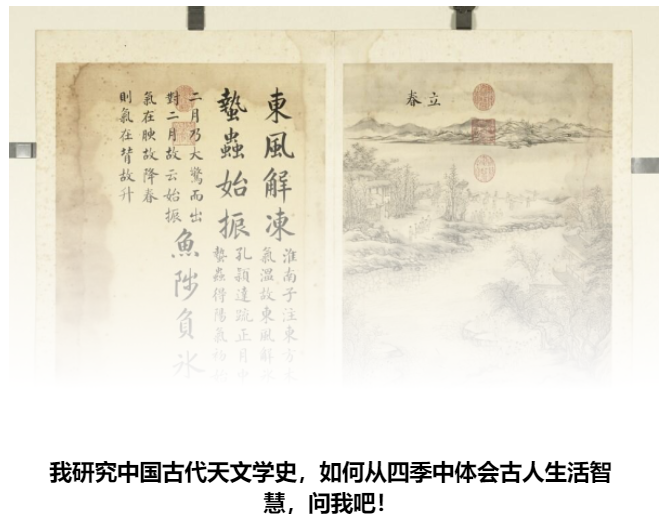 立春
東風解凍
淮南子注東方
氣溫故東風解
蟄蟲始振
孔穎達疏正月
蟄蟲得陽氣初
二月乃大驚而出
對二月故云始振
魚陟負氷
氣在腴故降春
則氣在背故升
我研究中国古代天文学史，如何从四季中体会古人生活智
慧，问我吧！